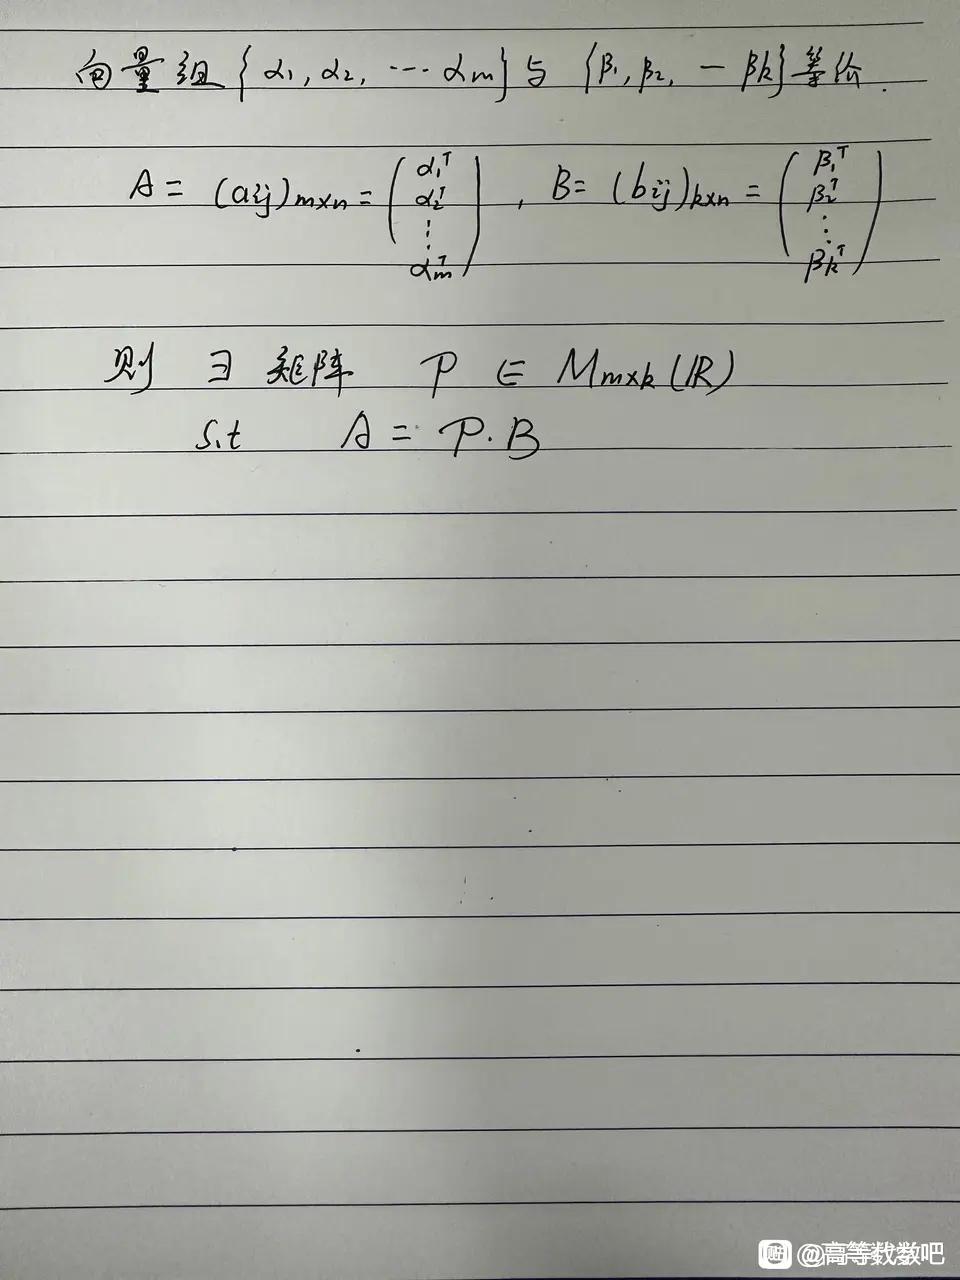 向量组{α₁, α₂, ⋯ αm}与{β₁, β₂, — βk}等价.
A = (aij)m×n = (α₁ᵀ α₂ᵀ ⋮ αmᵀ), B = (bij)k×n = (β₁ᵀ β₂ᵀ ⋮ βkᵀ)
则 ∃ 矩阵 P ∈ Mm×k(ℝ)
s.t A = P·B
贴 @高等数学吧